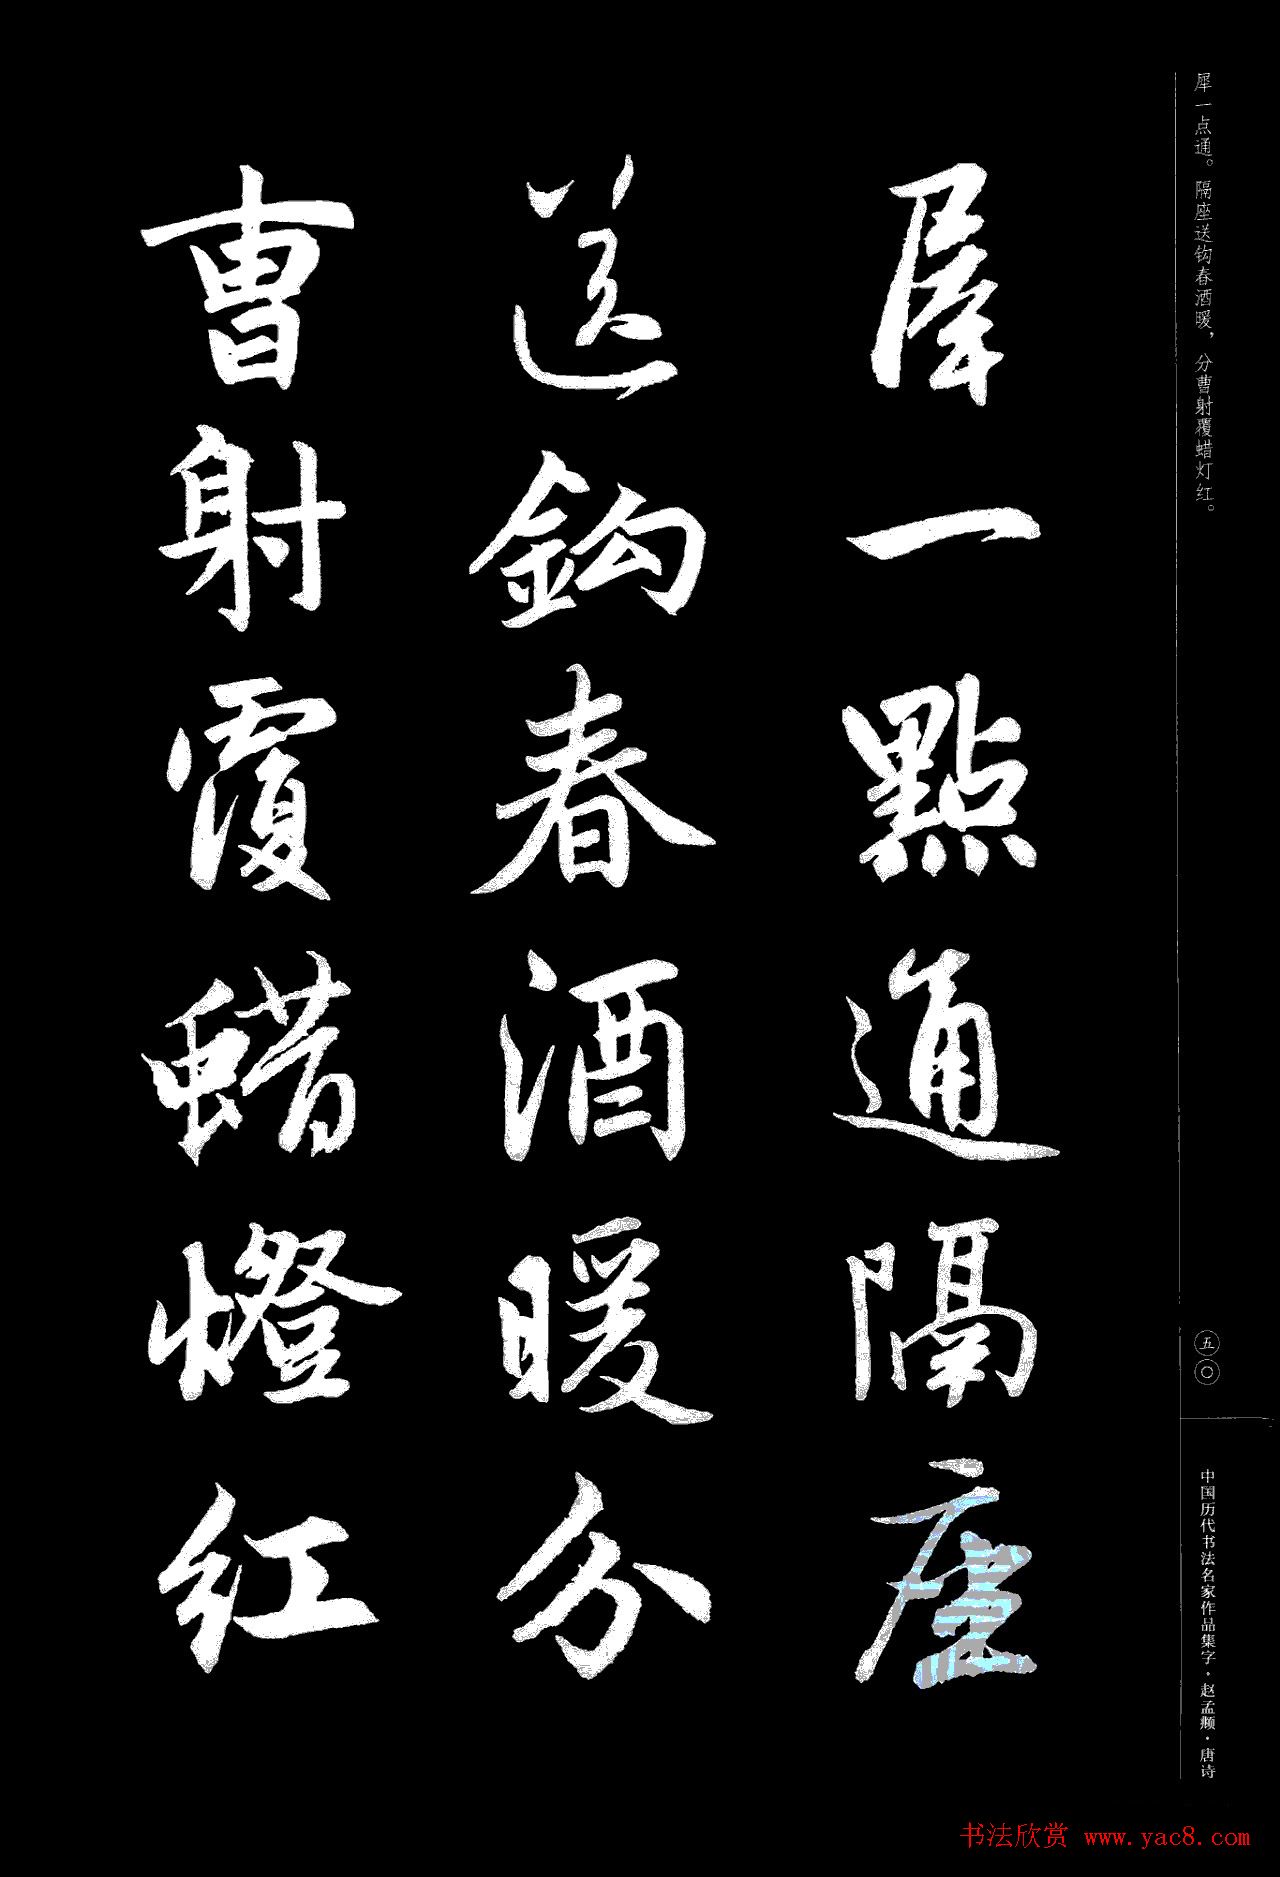 犀一点通。隔座送钩春酒暖，分曹射覆蜡灯红。
犀一點通隔座
送鈎春酒暖分
曹射覆蜡燈红
五〇
中国历代书法名家作品集字·赵孟頫·唐诗
书法欣赏 www.yac8.com